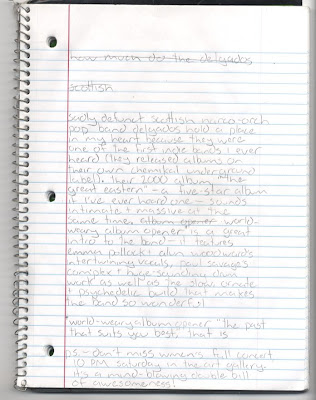 how much do the delgados
scottish.
sadly defunct scottish narco-orch
pop band delgados hold a place
in my heart because they were
one of the first indie bands I ever
heard (they released albums on
their own chemikal underground
label). their 2000 album, "the
great eastern" - a five-star album
if I've ever heard one - sounds
intimate + massive at the
same time. album opener world-
weary album opener is a great
intro to the band - it features
emma pollack + alun woodward's
intertwining vocals, paul savage's
complex + huge-sounding drum
work as well as the slow ornate
+ psychedelic build that makes
the band so wonderful
*world-weary album opener "the past
that suits you best" that is
p.s. - don't miss women's full concert
10 PM saturday in the art gallery.
it's a mind-blowing double bill
of awesomeness!